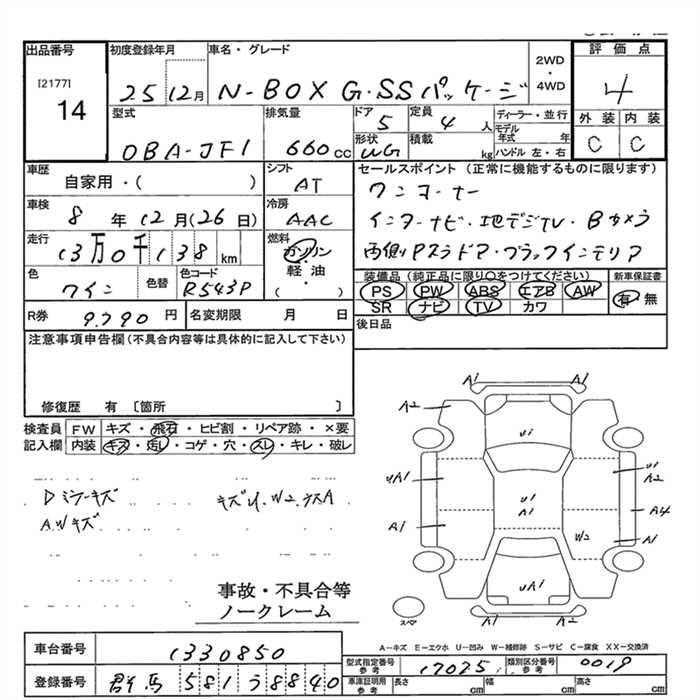 出品番号
[2177]
14
初度登録年月
25 12月
車名・グレード
N-BOX G・SSパッケージ
2WD
・
4WD
評価点
4
型式
DBA-JF1
排気量
660cc
ドア
5
定員
4 人
形状
WG
積載
kg
ディーラー・並行
モデル年式 年
ハンドル 左・右
外装 内装
C C
車歴
自家用・( )
シフト
AT
車検
8年12月(26日)
冷房
AAC
走行
13万0千138km
燃料
ガソリン
・
軽油
・
( )
色
ワイン
色替
色コード
R543P
R券
9.790円
名変期限 月 日
セールスポイント(正常に機能するものに限ります)
ワンオーナー
インターナビ・地デジTV・Bカメラ
両側Pスラドア・ブラックインテリア
装備品(純正品に限り○をつけてください)
PS PW ABS エアB AW
SR ナビ TV カワ
新車保証書
有・無
後日品
注意事項申告欄(不具合内容等は具体的に記入して下さい)
修復歴 有 〔箇所 〕
検査員
記入欄
FW キズ・飛石・ヒビ割・リペア跡・×要
内装 キズ・汚レ・コゲ・穴・スレ・キレ・破レ
Dミラーキズ
AWキズ
キズU.W2.ウスA
A1 A1
A2 A2
U1
UA1
U1
A2
U1
A1
A1
A4
W2
A1
UA1
A1 A2
スペア
事故・不具合等
ノークレーム
A-キズ E-エクボ U-凹み W-補修跡 S-サビ C-腐食 XX-交換済
車台番号
1330850
登録番号
群馬 581う8840
型式指定番号
参考
17025
類別区分番号
参考
0019
車庫証明用
参考
長さ cm 幅 cm 高さ cm